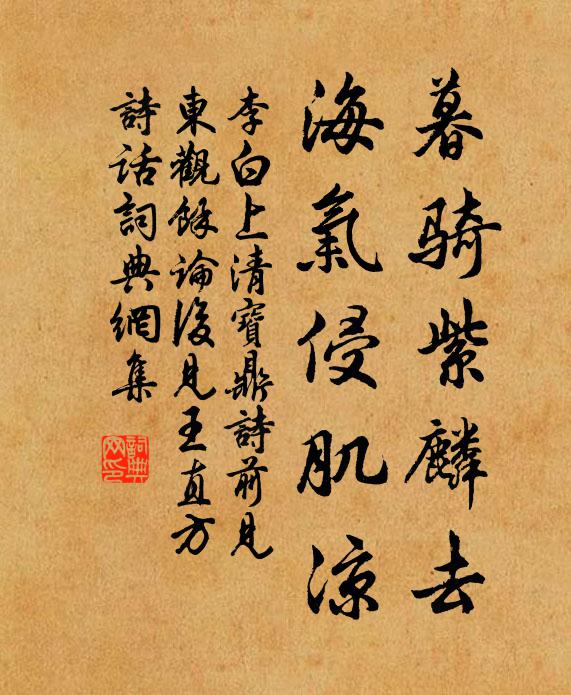 暮骑紫麟去
海氣侵肌涼
李白上清寶鼎詩前見
東觀餘論後見王直方
詩话詞典網集
詞典
网印